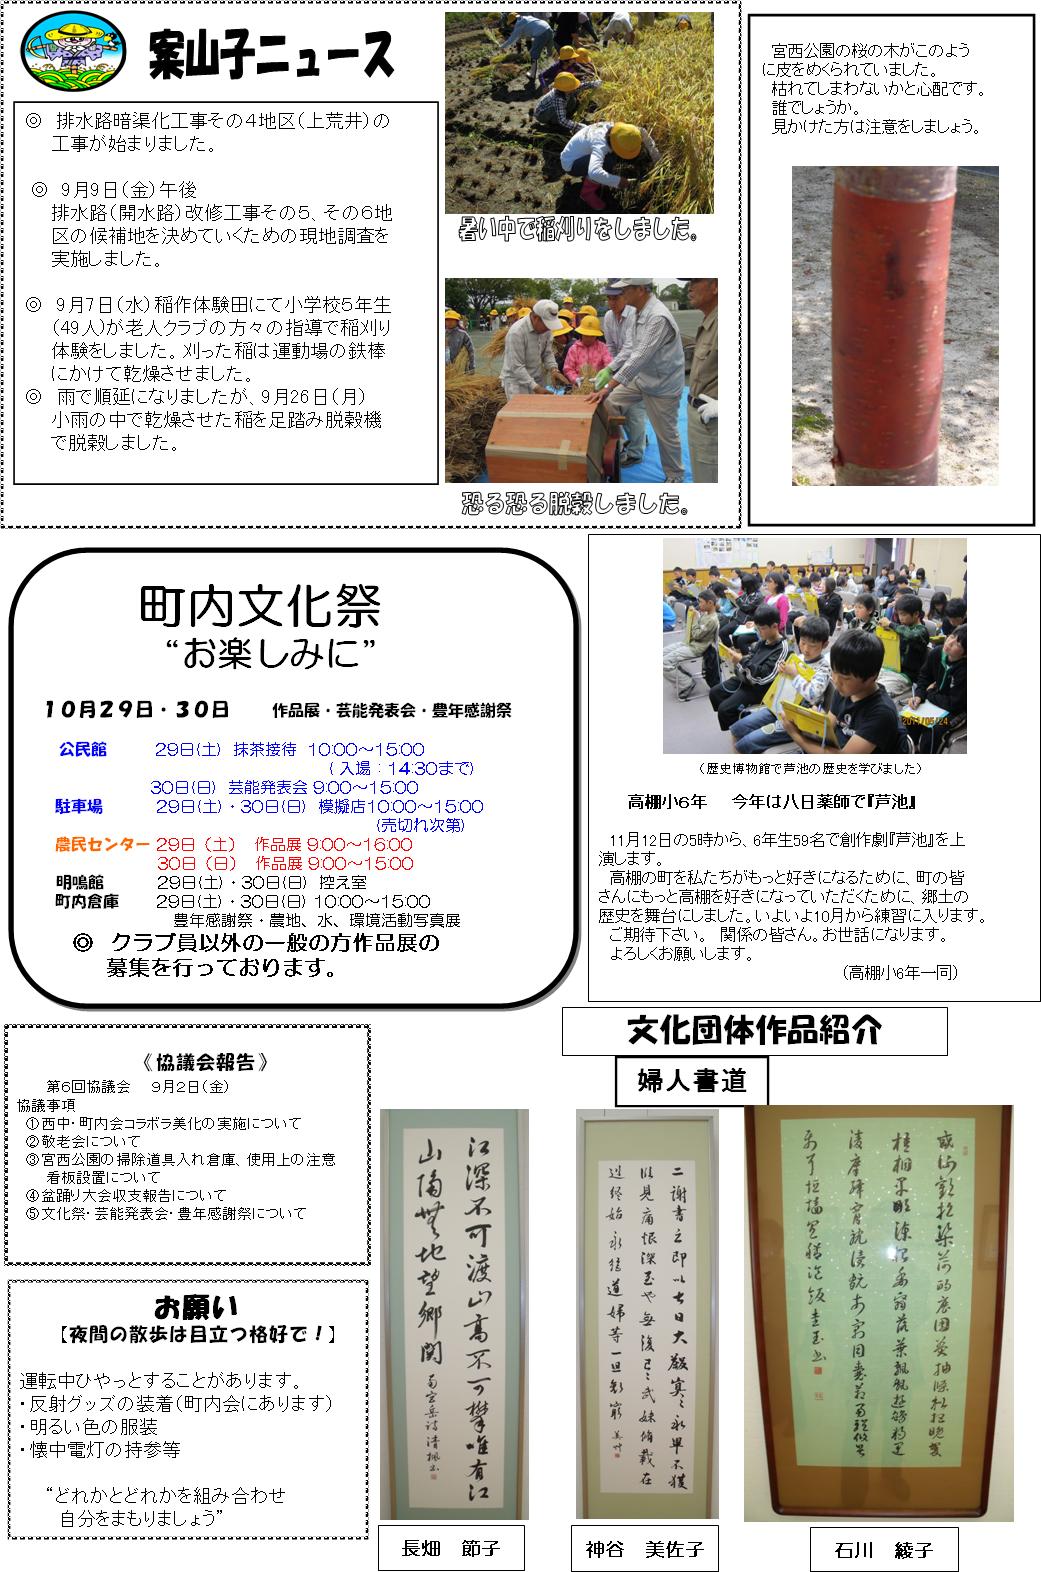 案山子ニュース
◎ 排水路暗渠化工事その４地区（上荒井）の
工事が始まりました。
◎ 9月9日（金）午後
排水路（開水路）改修工事その５、その６地
区の候補地を決めていくための現地調査を
実施しました。
◎ 9月7日（水）稲作体験田にて小学校５年生
（49人）が老人クラブの方々の指導で稲刈り
体験をしました。刈った稲は運動場の鉄棒
にかけて乾燥させました。
◎ 雨で順延になりましたが、9月26日（月）
小雨の中で乾燥させた稲を足踏み脱穀機
で脱穀しました。
暑い中で稲刈りをしました。
恐る恐る脱穀しました。
宮西公園の桜の木がこのよう
に皮をめくられていました。
枯れてしまわないかと心配です。
誰でしょうか。
見かけた方は注意をしましょう。
町内文化祭
“お楽しみに”
１０月２９日・３０日　作品展・芸能発表会・豊年感謝祭
公民館　29日(土)　抹茶接待　10:00～15:00
（入場：14:30まで）
30日(日)　芸能発表会 9:00～15:00
駐車場　29日(土)・30日(日)　模擬店10:00～15:00
(売切れ次第)
農民センター 29日（土）　作品展 9:00～16:00
30日（日）　作品展 9:00～15:00
明鳴館　29日(土)・30日(日)　控え室
町内倉庫　29日(土)・30日(日) 10:00～15:00
豊年感謝祭・農地、水、環境活動写真展
◎ クラブ員以外の一般の方作品展の
募集を行っております。
2011/05/24
（歴史博物館で芦池の歴史を学びました）
高棚小６年　今年は八日薬師で『芦池』
11月12日の5時から、6年生59名で創作劇『芦池』を上
演します。
高棚の町を私たちがもっと好きになるために、町の皆
さんにもっと高棚を好きになっていただくために、郷土の
歴史を舞台にしました。いよいよ10月から練習に入ります。
ご期待下さい。　関係の皆さん。お世話になります。
よろしくお願いします。
（高棚小6年一同）
《協議会報告》
第6回協議会　9月2日（金）
協議事項
①西中・町内会コラボラ美化の実施について
②敬老会について
③宮西公園の掃除道具入れ倉庫、使用上の注意
看板設置について
④盆踊り大会収支報告について
⑤文化祭・芸能発表会・豊年感謝祭について
お願い
【夜間の散歩は目立つ格好で！】
運転中ひやっとすることがあります。
・反射グッズの装着（町内会にあります）
・明るい色の服装
・懐中電灯の持参等
“どれかとどれかを組み合わせ
自分をまもりましょう”
文化団体作品紹介
婦人書道
江深不可渡山高不可攀唯有江
山隔無地望郷関
長畑　節子
神谷　美佐子
石川　綾子